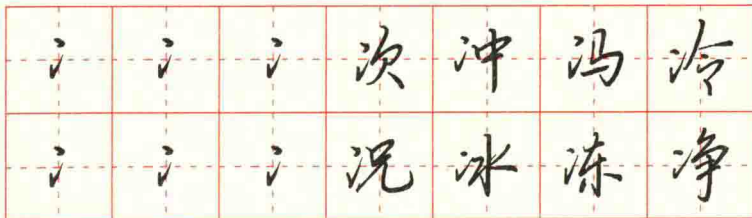 冫冫冫次冲冯冷
冫冫冫况冰冻净